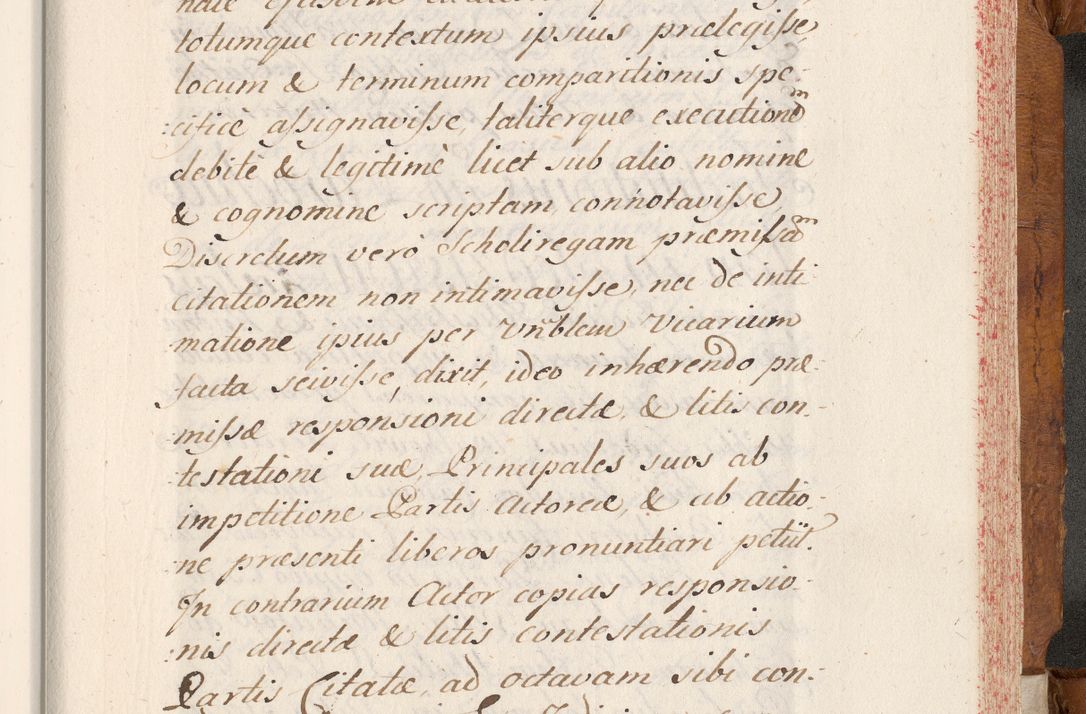 totumque contextum ipsius prælegiſse,
locum & terminum comparitionis spe-
:cificè aſsignaviſse, taliterque execution̅em
debitè & legitimè licet sub alio nomine
& cognomine scriptam, connotaviſse,
Discretum verò Scholiregam præmiſsam
citationem non intimaviſse, nec de inti-
:matione ipius per Vnblem Vicarium
facta sciviſse, dixit, ideo inhærendo præ-
:miſsæ responsioni directæ, & litis con-
:testationi suæ, Principales suos ab
impetitione Partis Actoreæ, & ab actio-
:ne præsenti liberos pronuntiari petiit.
In contrarium Actor copias responsio-
:nis directæ & litis contestationis
Partis Citatæ, ad octavam sibi con-